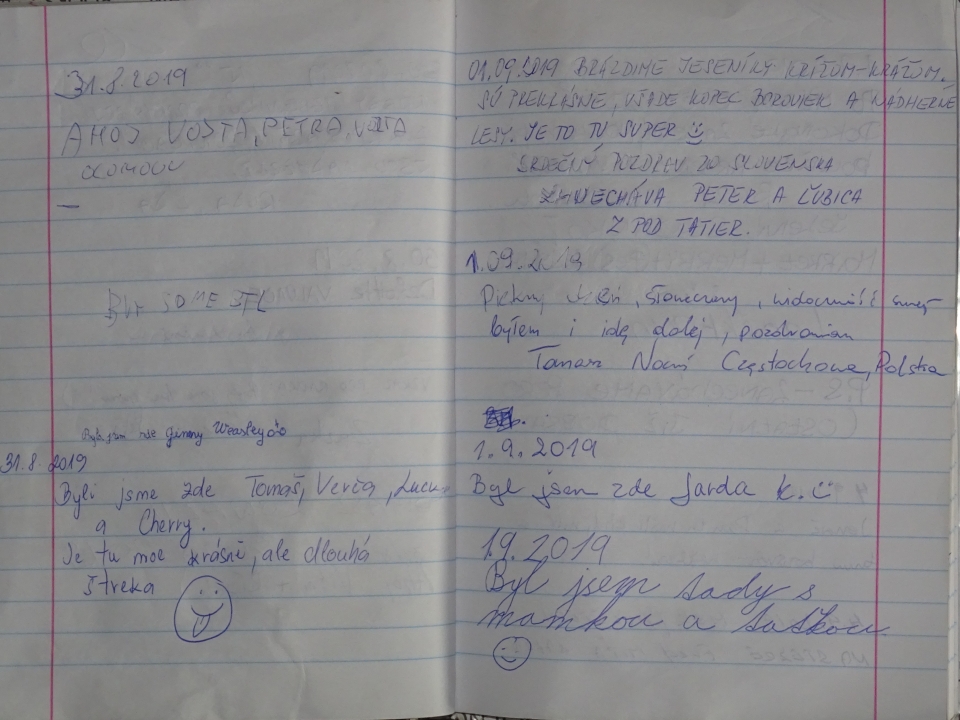 31.8.2019
AHOJ, VOJTA, PETRA, VOJTA
OLOMOUC
BYLI SOME
Byla jsem zde Ginny Weasleyová
31.8.2019
Byli jsme zde Tomáš, Verča,
a Cherry.
Je tu moc krásně, ale dlouhá
štreka
01.09.2019 BRÁZDIME JESENÍKY KRÍŽUM-KRÁŽUM.
SÚ PREKRÁSNE, VŠADE KOPEC BOROVIEK A NÁDHERNÉ
LESY. JE TO TU SUPER
SRDEČNÝ POZDRAV ZO SLOVENSKA
ZANECHÁVA PETER A ĽUBICA
Z POD TATIER.
1.09.2019
Piękny dzień, słoneczny, widoczność
byłem i idę dalej, pozdrawiam
Tomasz Częstochowa, Polska
1.9.2019
Byl jsem zde Jarda K.
1.9.2019
Byl jsem tady s
mamkou a taťkou